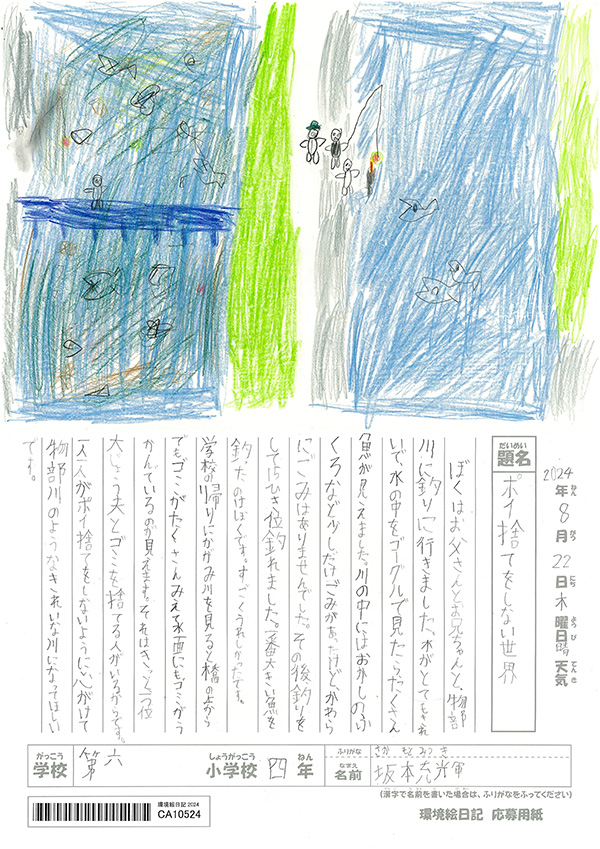 2024年8月22日木曜日晴天気
ねん がつ にち ようび てんき
だいめい
題名
ポイ捨てをしない世界
ぼくはお父さんとお兄ちゃんと、物部
川に釣りに行きました。水がとてもきれ
いで、水の中をゴーグルで見たらたくさん
魚が見えました。川の中にはおかしのふ
くろなど少しだけごみがあったけどかわら
にごみはありませんでした。その後釣りを
して15ひき位釣れました。一番大きい魚を
釣ったのはぼくです。すごくうれしかったです。
学校の帰りにかがみ川を見ると橋の上から
でもゴミがたくさんみえて水面にもゴミがう
かんでいるのが見えます。それはきっと一つ位
大じょう夫とゴミを捨てる人がいるからです。
一人一人がポイ捨てをしないように心がけて
物部川のようなきれいな川になってほしい
です。
がっこう しょうがっこう ねん
学校 第六 小学校 四年
ふりがな さかもとみつき
なまえ
名前 坂本充輝
(漢字で名前を書いた場合は、ふりがなをふってください)
環境絵日記2024
CA10524
環境絵日記 応募用紙